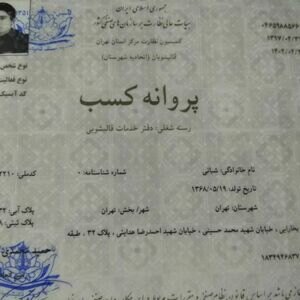 جمهوری اسلامی ایران
هیات عالی نظارت بر سازمان‌های صنفی کشور
کمیسیون نظارت مرکز استان تهران
قالیشویان (اتحادیه شهرستان)
۰۴۶۵۹۸۸۵۶۶
۱۳۹۷/۰۲/۳
۱۴۰۲/۰۲/۳
نوع شخص
نوع فعالیت
کد آیسیک
پروانه کسب
رسته شغلی: دفتر خدمات قالیشویی
نام خانوادگی: شبانی
شماره شناسنامه: ۰
کدملی: ۲۲۱۰
تاریخ تولد: ۱۳۶۸/۰۵/۱۹
شهرستان: تهران
شهر/ بخش: تهران
پلاک آبی: ۳۲
بخارایی، خیابان شهید محمد حسینی، خیابان شهید احمدرضا هدایتی، پلاک ۳۲، طبقه
پلاک ثبتی: ۸
۱۸۳۳۹۲۶۸۳۷